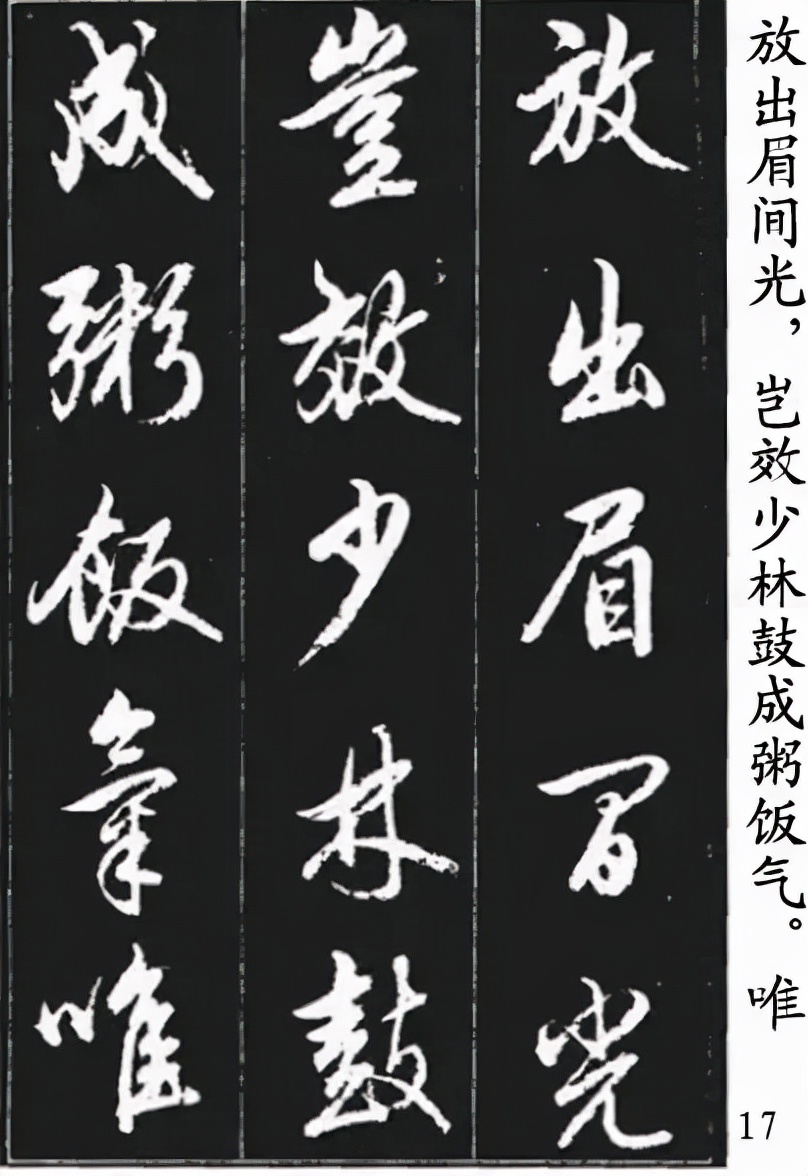 放出眉间光，岂效少林鼓成粥饭气。唯
放出眉间光
豈效少林鼓
成粥飯氣唯
17